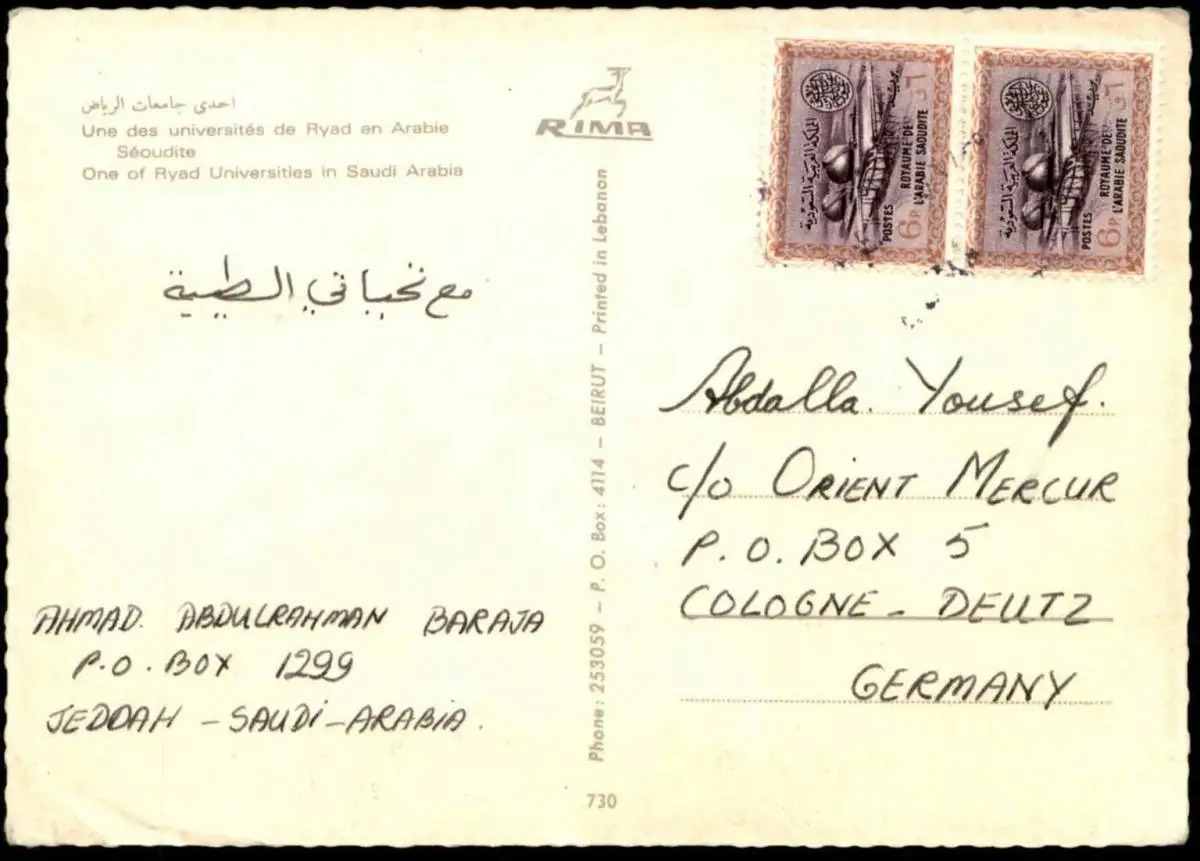 احدى جامعات الرياض
Une des universités de Ryad en Arabie
Séoudite
One of Ryad Universities in Saudi Arabia
RIMA
مع تحياتي الطيبة
AHMAD. ABDULRAHMAN BARAJA
P.O. BOX 1299
JEDDAH - SAUDI-ARABIA.
Phone: 253059 - P. O. Box: 4114 - BEIRUT - Printed in Lebanon
730
المملكة العربية السعودية
POSTES
ROYAUME DE
L'ARABIE SAOUDITE
6P.
٦
المملكة العربية السعودية
POSTES
ROYAUME DE
L'ARABIE SAOUDITE
6P.
٦
Abdalla. Yousef.
c/o ORIENT MERCUR
P.O. BOX 5
COLOGNE - DEUTZ
GERMANY